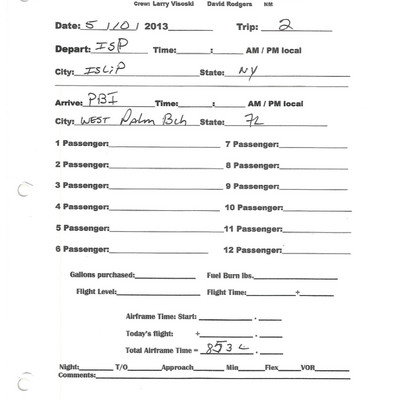 Crew: Larry Visoski David Rodgers NM
Date: 5/10/2013 Trip: 2
Depart: ISP Time: : AM / PM local
City: ISLIP State: NY
Arrive: PBI Time: : AM / PM local
City: WEST Palm Bch State: FL
1 Passenger: 7 Passenger:
2 Passenger: 8 Passenger:
3 Passenger: 9 Passenger:
4 Passenger: 10 Passenger:
5 Passenger: 11 Passenger:
6 Passenger: 12 Passenger:
Gallons purchased: Fuel Burn lbs.
Flight Level: Flight Time: +
Airframe Time: Start: .
Today's flight: + .
Total Airframe Time = .
Night: T/O Approach Min Flex VOR
Comments: